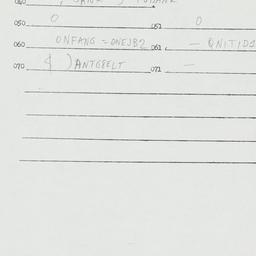 050 0 051 0
060 ONFANG = ONEJB2 061 - QNITIDJ
070 & ) ANTGEELT 071 -